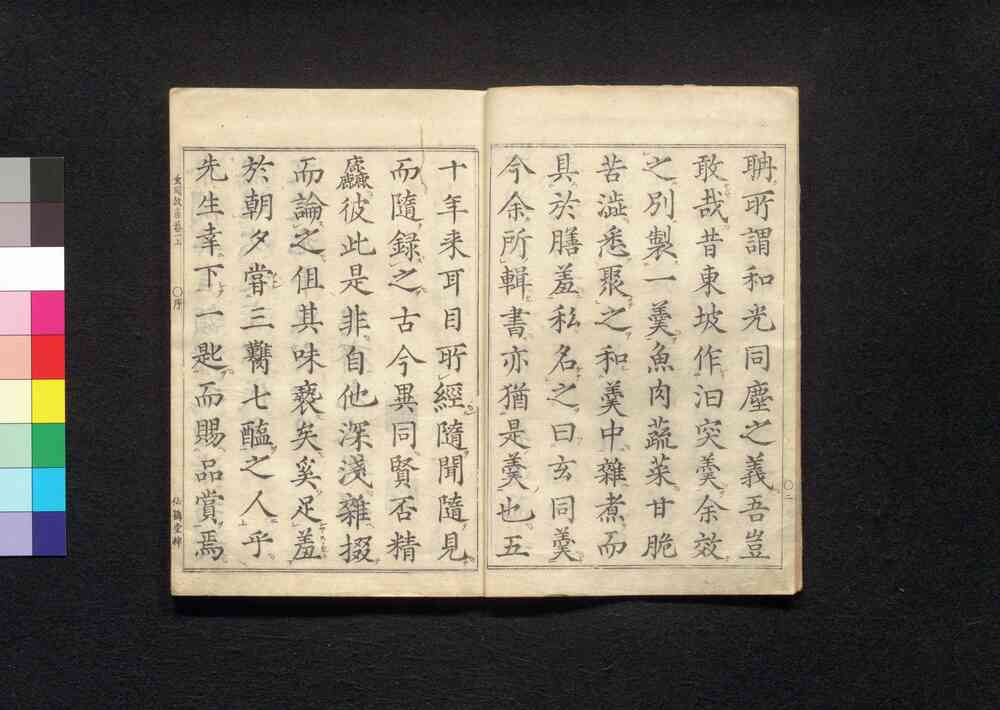 聃所謂和光同塵之義吾豈
敢哉昔東坡作汩突羹余效
之別製一羹魚肉蔬菜甘脆
苦澁悉聚之和羹中雜煮而
具於膳羞私名之曰玄同羹
今余所輯書亦猶是羹也五
十年来耳目所經隨聞隨見
而隨録之古今異同賢否精
麤彼此是非自他深淺雜掇
而論之但其味褻矣奚足羞
於朝夕甞三臡七醢之人乎
先生幸下一匙而賜品賞焉
〇序